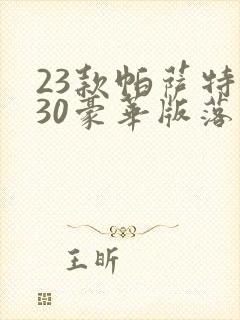 23款帕萨特
30豪华版落
王昕